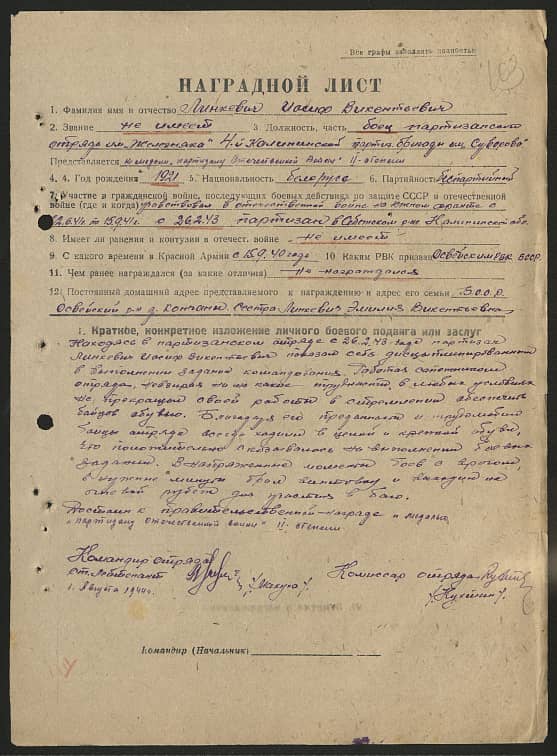 Все графы заполнять полностью
НАГРАДНОЙ ЛИСТ
1. Фамилия имя и отчество Линкевич Иосиф Викентьевич
2. Звание не имеет 3. Должность, часть боец партизанского
отряда им. Железняка 4-й Калининской партиз. бригады им. Суворова
Представляется к медали, партизану Отечественной войны II-степени
4. 4. Год рождения 1921 5. Национальность белорус 6. Партийность Беспартийный
7. Участие в гражданской войне, последующих боевых действиях по защите СССР и отечественной
войне (где и когда) участвовал в отечественной войне на южном фронте с
22.6.41г. по 15.9.41г. с 26.2.43 партизан в Себежском р-не Калининской обл.
8. Имеет ли ранения и контузии в отечест. войне не имеет
9. С какого времени в Красной Армии с 15.9.40 года 10 Каким РВК призван Освейским РВК БССР.
11. Чем ранее награждался (за какие отличия) Не награждался
12. Постоянный домашний адрес представляемого к награждению и адрес его семьи БССР
Освейский р-н д. сестра Линкевич Эмилия Викентьевна
1. Краткое, конкретное изложение личного боевого подвига или заслуг
Находясь в партизанском отряде с 26.2.43 года партизан
Линкевич Иосиф Викентьевич показал себя дисциплинированным
в выполнении заданий командования. Работая сапожником
отряда, невзирая ни на какие трудности в любых условиях
не прекращал своей работы в стремлении обеспечить
бойцов обувью. Благодаря его преданности и трудолюбию
бойцы отряда всегда ходили в целой и крепкой обуви,
что положительно сказывалось на выполнении боевых
заданий. В напряженные моменты боев с врагом,
в нужные минуты брал винтовку и выходил на
огневой рубеж для участия в бою.
Достоин к правительственной награде и медали
"партизану Отечественной войны" II-степени.
Командир отряда
ст. лейтенант
1. Августа 1944г.
Комиссар отряда
Командир (Начальник)